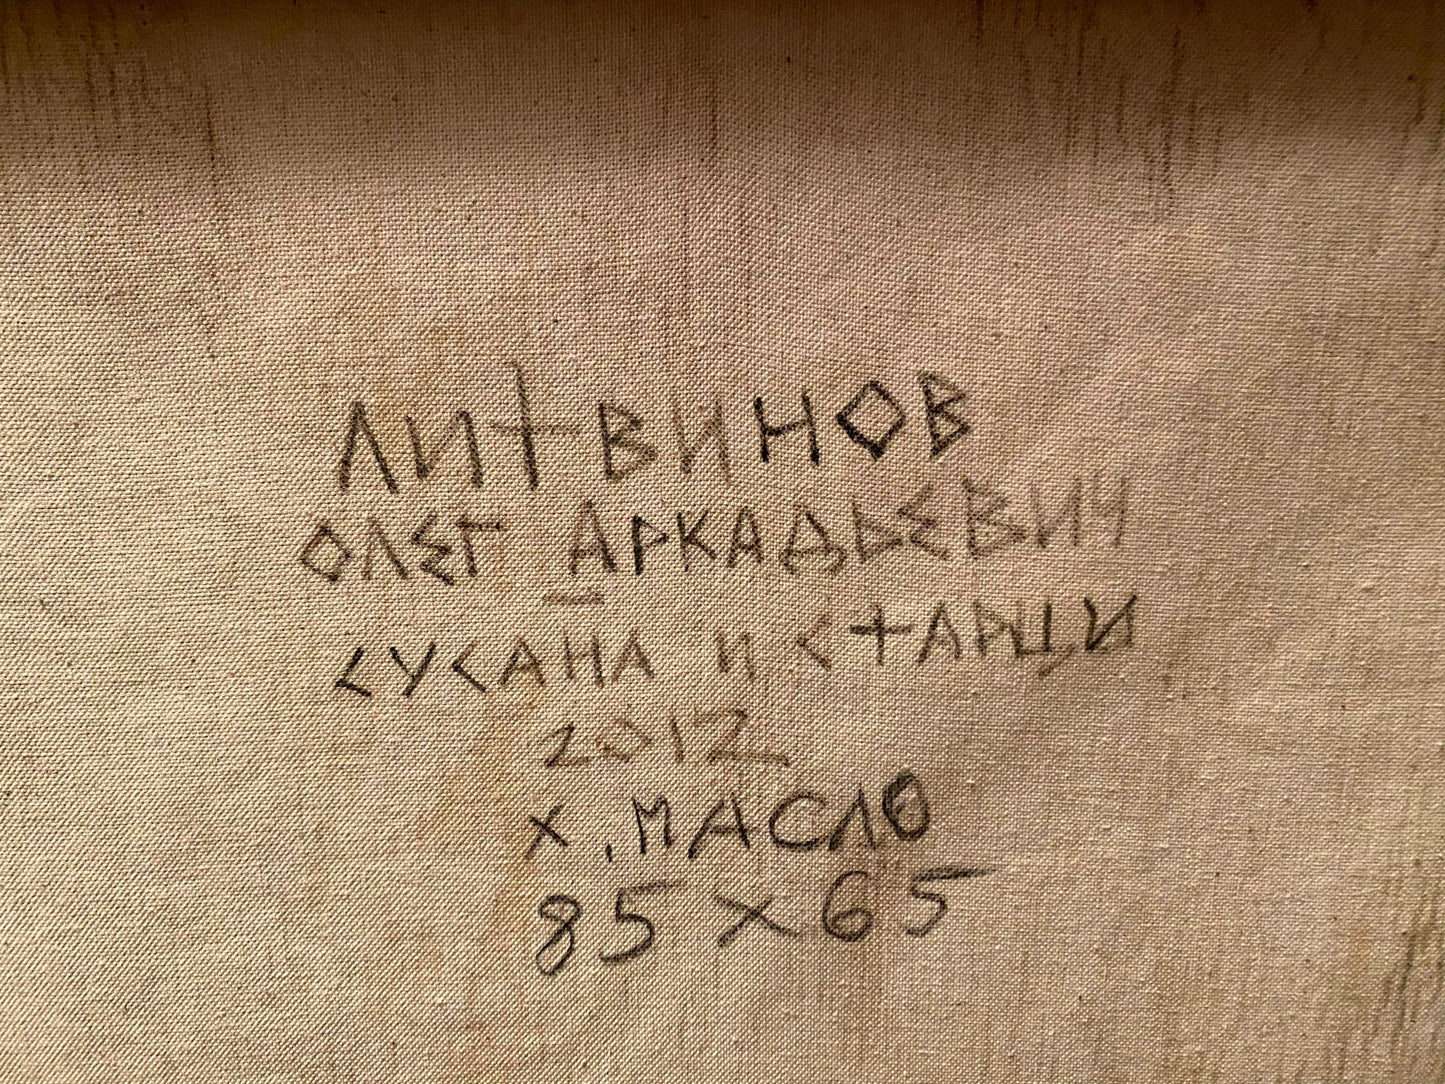 ЛИТВИНОВ
ОЛЕГ АРКАДЬЕВИЧ
СУСАНА И СТАРЦИ
2012
Х, МАСЛО
85 х 65